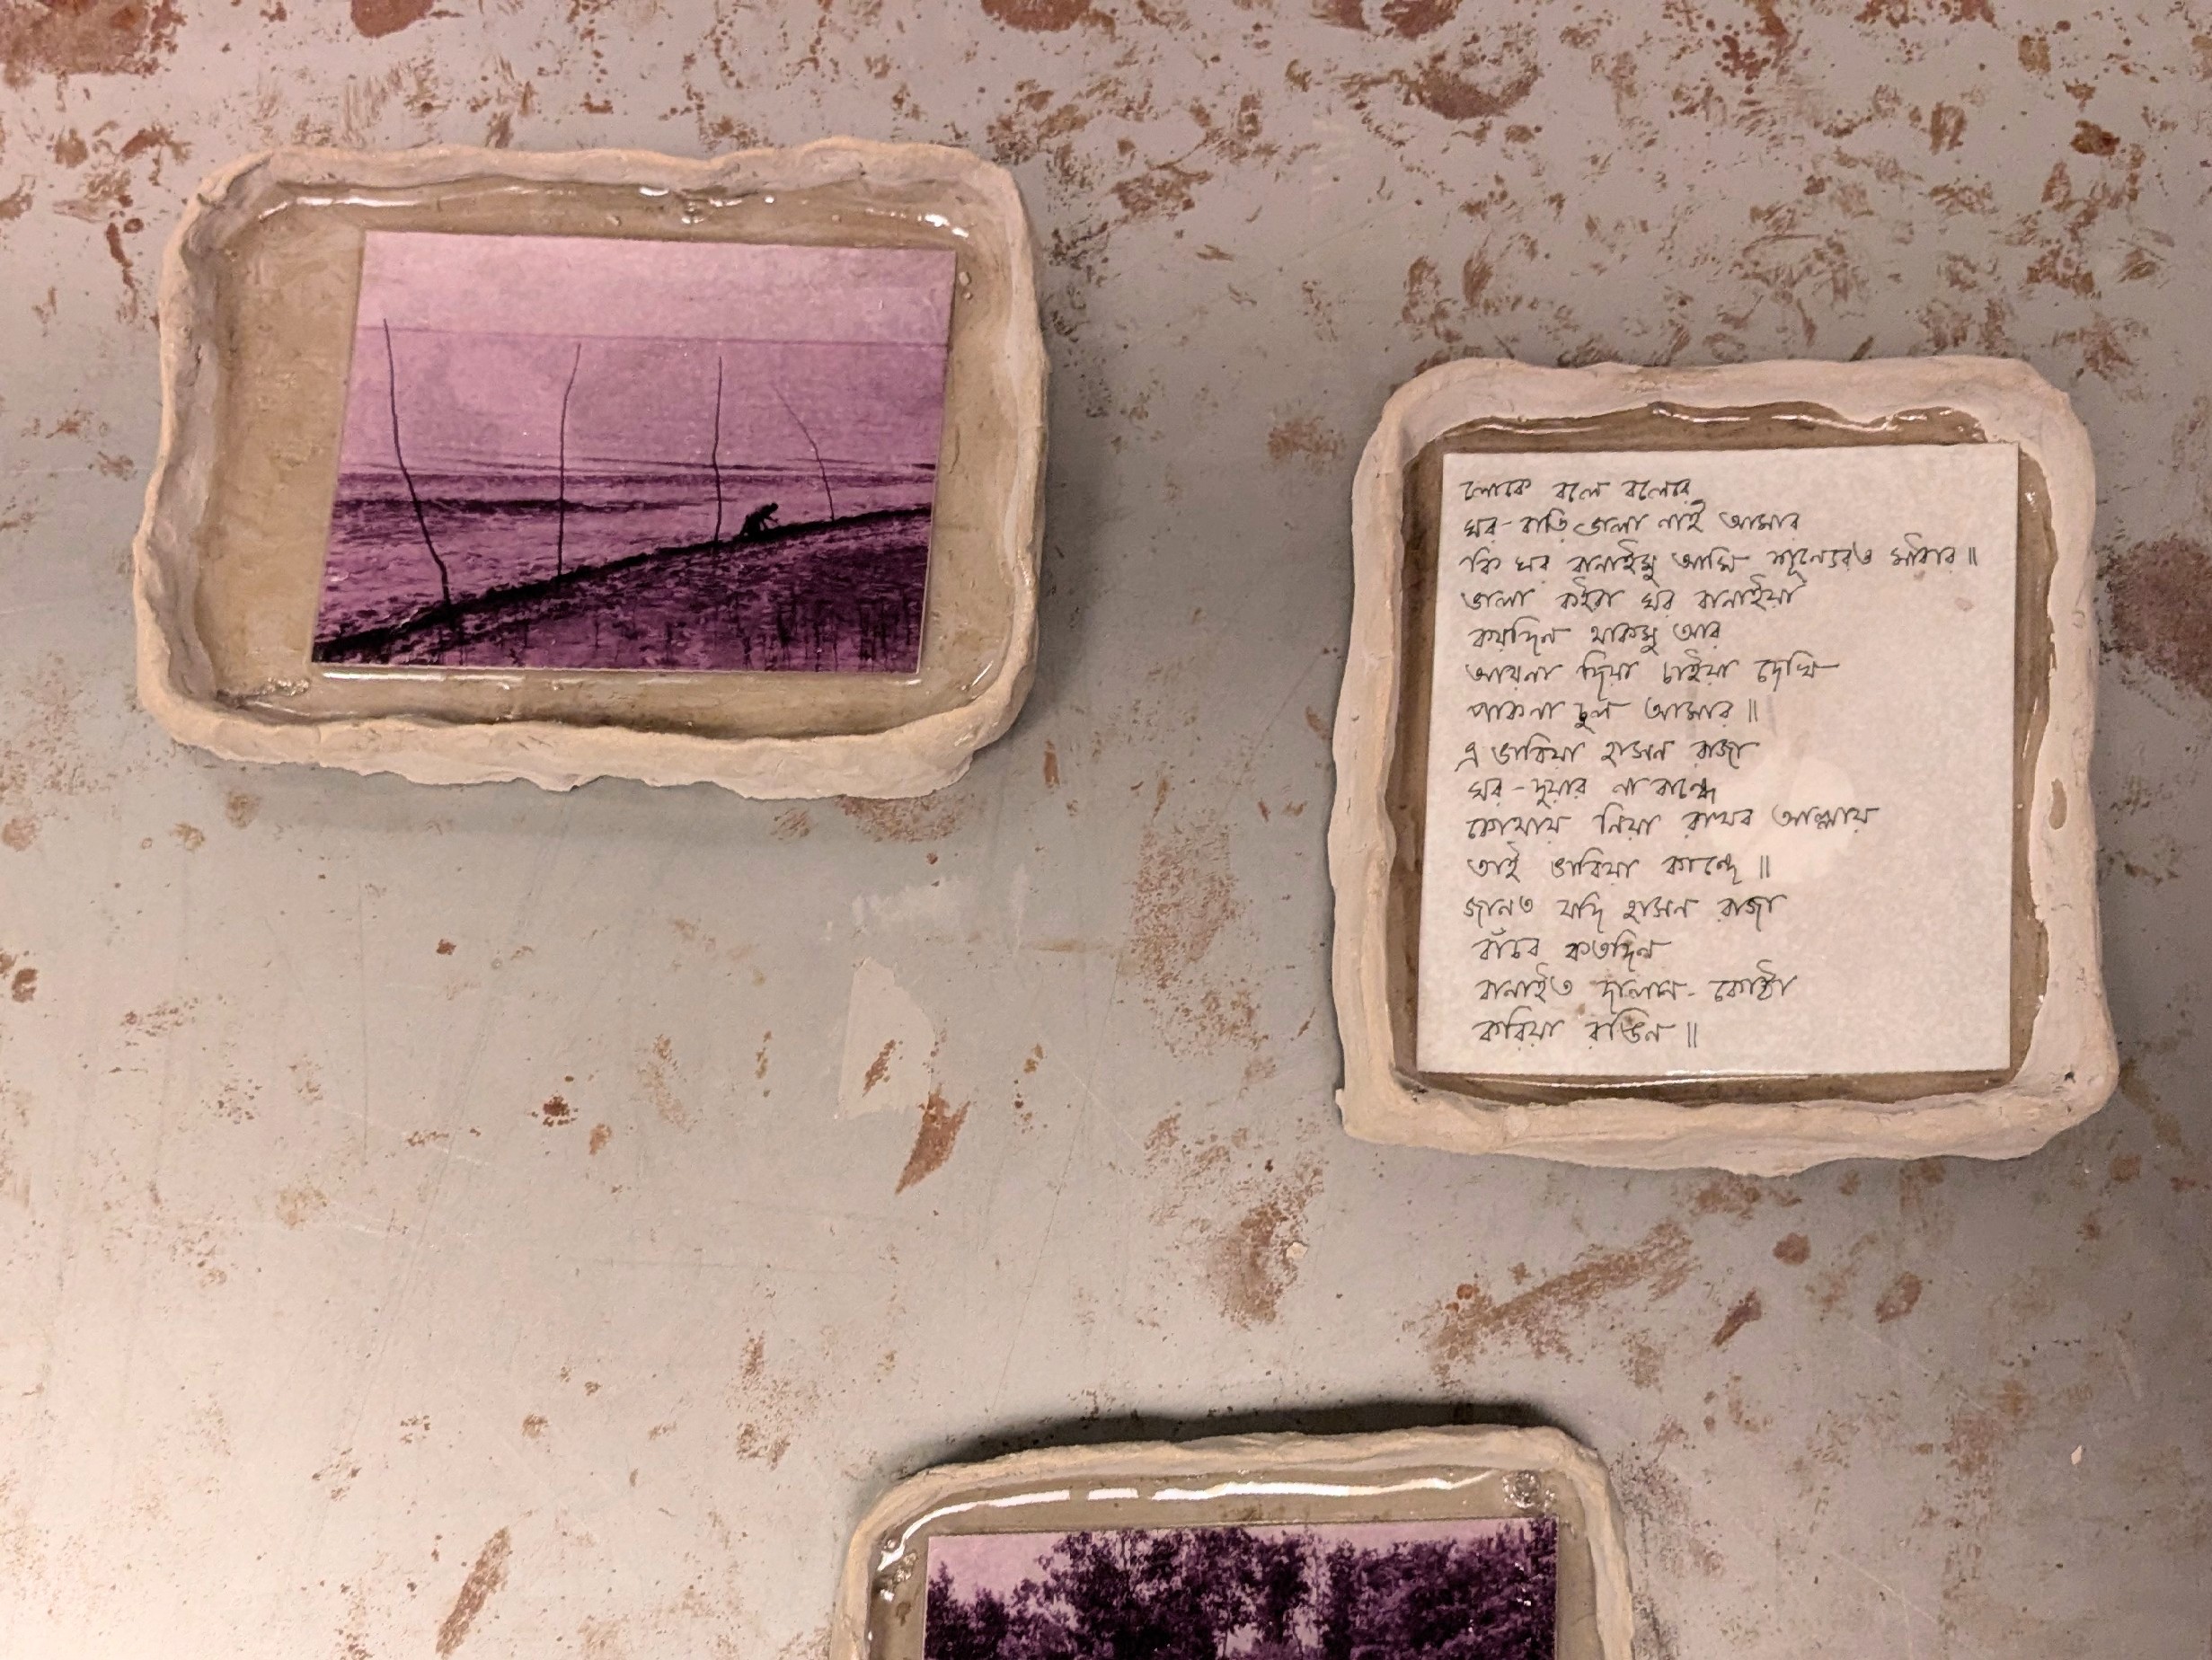 লোকে বলে বলেরে
ঘর-বাড়ি ভালা নাই আমার
কি ঘর বানাইমু আমি শূন্যেরও মাঝার॥
ভালা কইরা ঘর বানাইয়া
কয়দিন থাকমু আর
আয়না দিয়া চাইয়া দেখি
পাকনা চুল আমার॥
এ ভাবিয়া হাসন রাজা
ঘর-দুয়ার না বান্ধে
কোথায় নিয়া রাখব আল্লায়
তাই ভাবিয়া কান্দে॥
জানত যদি হাসন রাজা
বাঁচব কতদিন
বানাইত দালান-কোঠা
করিয়া রঙিন॥